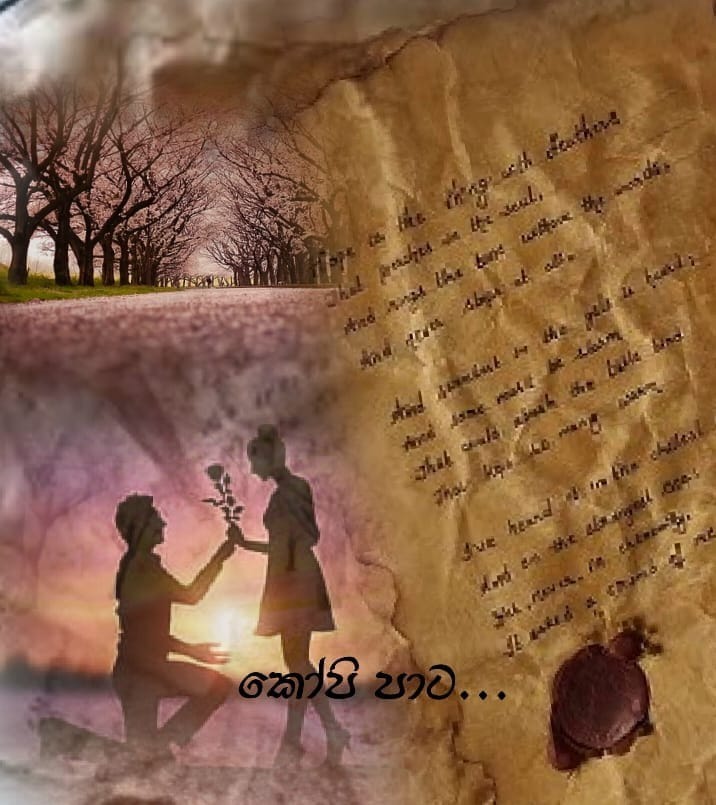 ope is the thing with feathers
That perches in the soul,
And sings the tune without the words,
And never stops at all.
And sweetest in the gale is heard;
And sore must be the storm
That could abash the little bird
That kept so many warm.
I've heard it in the chillest
And on the strangest sea;
Yet, never, in extremity,
It asked a crumb of me
කෝපි පාට...